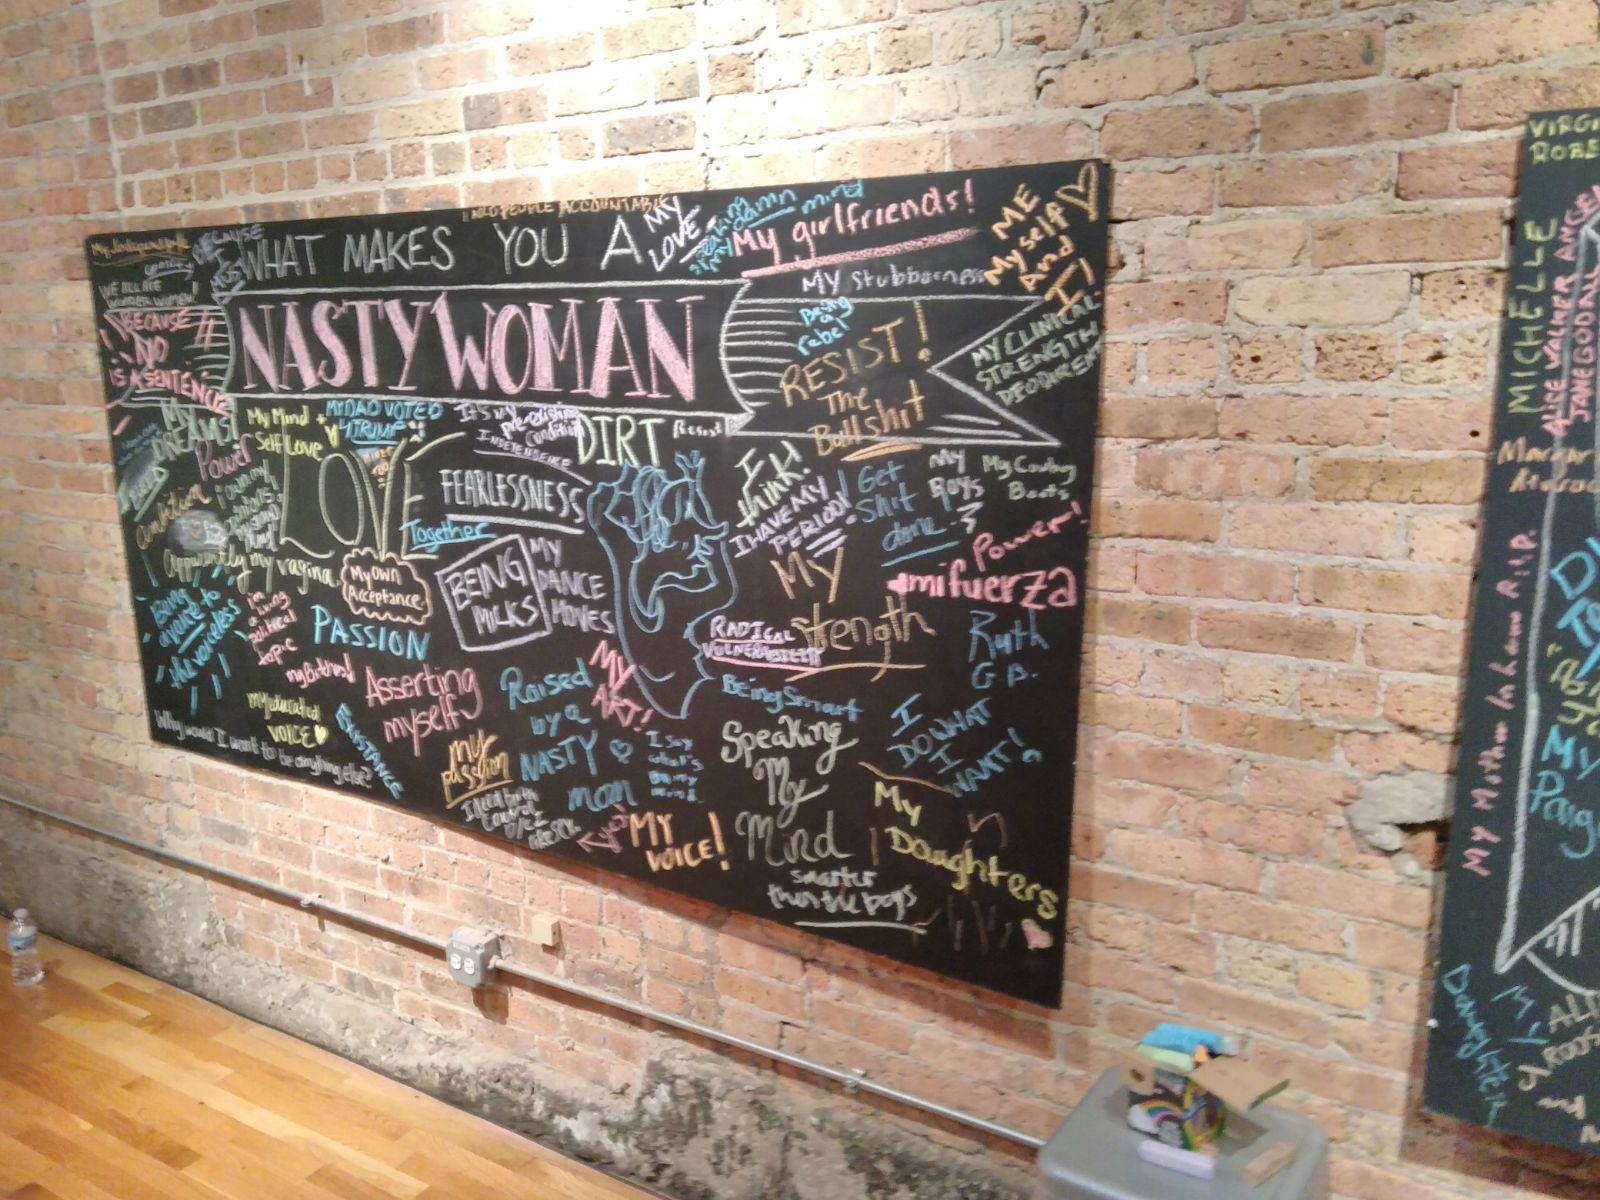 WHAT MAKES YOU A
NASTY WOMAN
PEOPLE ACCOUNTABLE
MY
LOVE
speaking
my damn mind
My girlfriends!
ME
Myself
And
I
BECAUSE
I
WE ALL ARE
WONDER WOMEN!
BECAUSE
NO
IS A SENTENCE
My Stubborness
Being
a
rebel
RESIST!
The
Bullshit
MY CLINICAL
STRENGTH
DEODORENT
MY
DREAMS!
Power
ambition
My Mind +
Self Love
MY DAD VOTED
4 TRUMP
It's my
pre-existing
condition
INDEPENDENCE
DIRT
Resist
LOVE
FEARLESSNESS
Together
I
think!
I HAVE MY
PERIOD!
I Get
Shit
done!
My
Boys
3
My Cowboy
Boots
Power!
mifuerza
i own my
opinions
Apparently my vagina
My Own
Acceptance
BEING
MILKS
MY
DANCE
MOVES
MY
strength
RADICAL
VULNERABILITY
Ruth
G.B.
Being
a voice to
the voiceless
i'm
a living
political
topic
PASSION
my Birthright
Asserting
myself
Raised
by a
NASTY
mom
MY
ART!
Being Smart
I
DO WHAT
I
WANT!
my educated
VOICE
Why would I want to be anything else?
my
passion
I need birth
control
I say
what's
on my
mind
MY
VOICE!
Speaking
My
Mind
smarter
than the boys
My
Daughters
MICHELLE
ALICE WALKER
JANE GOODALL
My Mother In law R.I.P.
My
Daughter